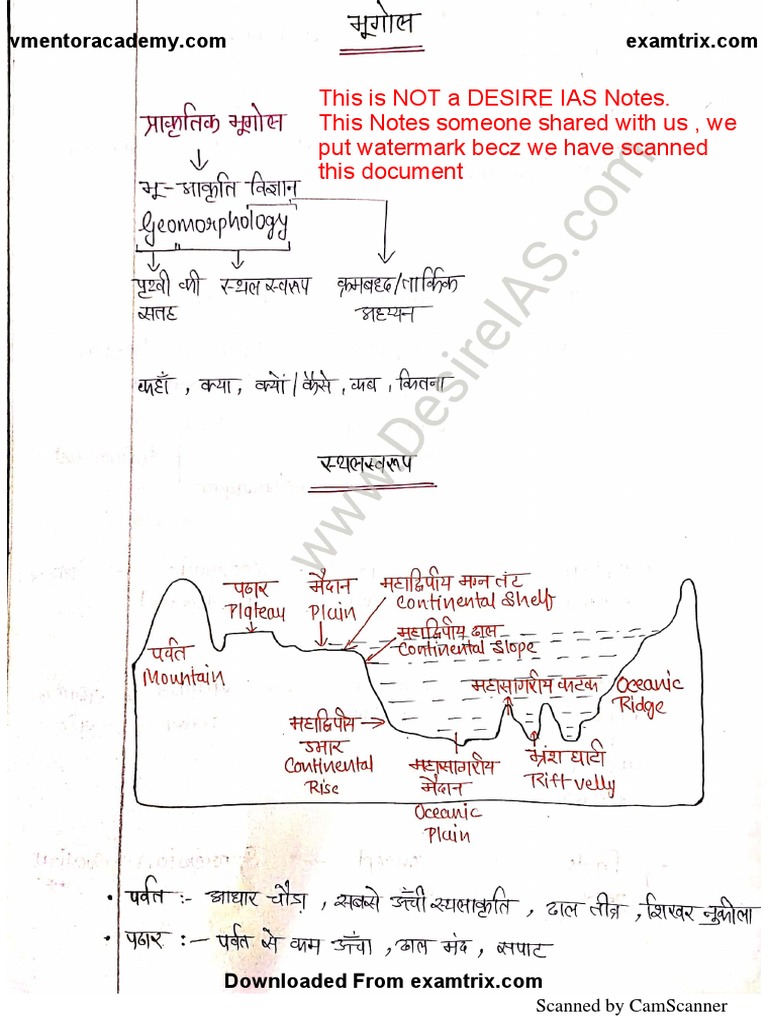 भूगोल
vmentoracademy.com
examtrix.com
This is NOT a DESIRE IAS Notes.
This Notes someone shared with us , we
put watermark becz we have scanned
this document
प्राकृतिक भूगोल
भू-आकृति विज्ञान
Geomorphology
पृथ्वी की सतह
स्थल स्वरूप
क्रमबद्ध/तार्किक
अध्ययन
कहाँ , क्या, क्यों/कैसे, कब , कितना
www.DesireIAS.com
स्थलस्वरूप
पर्वत
Mountain
पठार
Plateau
मैदान
Plain
महाद्विपीय मग्न तट
Continental Shelf
महाद्विपीय ढाल
Continental Slope
महासागरीय कटक
Oceanic
Ridge
महाद्विपीय
उभार
Continental
Rise
महासागरीय
मैदान
Oceanic
Plain
भ्रंश घाटी
Rift-velly
• पर्वत :- आधार चौड़ा , सबसे ऊँची स्थलाकृति , ढाल तीव्र , शिखर नुकीला
• पठार :- पर्वत से कम ऊँचा , ढाल मंद , सपाट
Downloaded From examtrix.com
Scanned by CamScanner